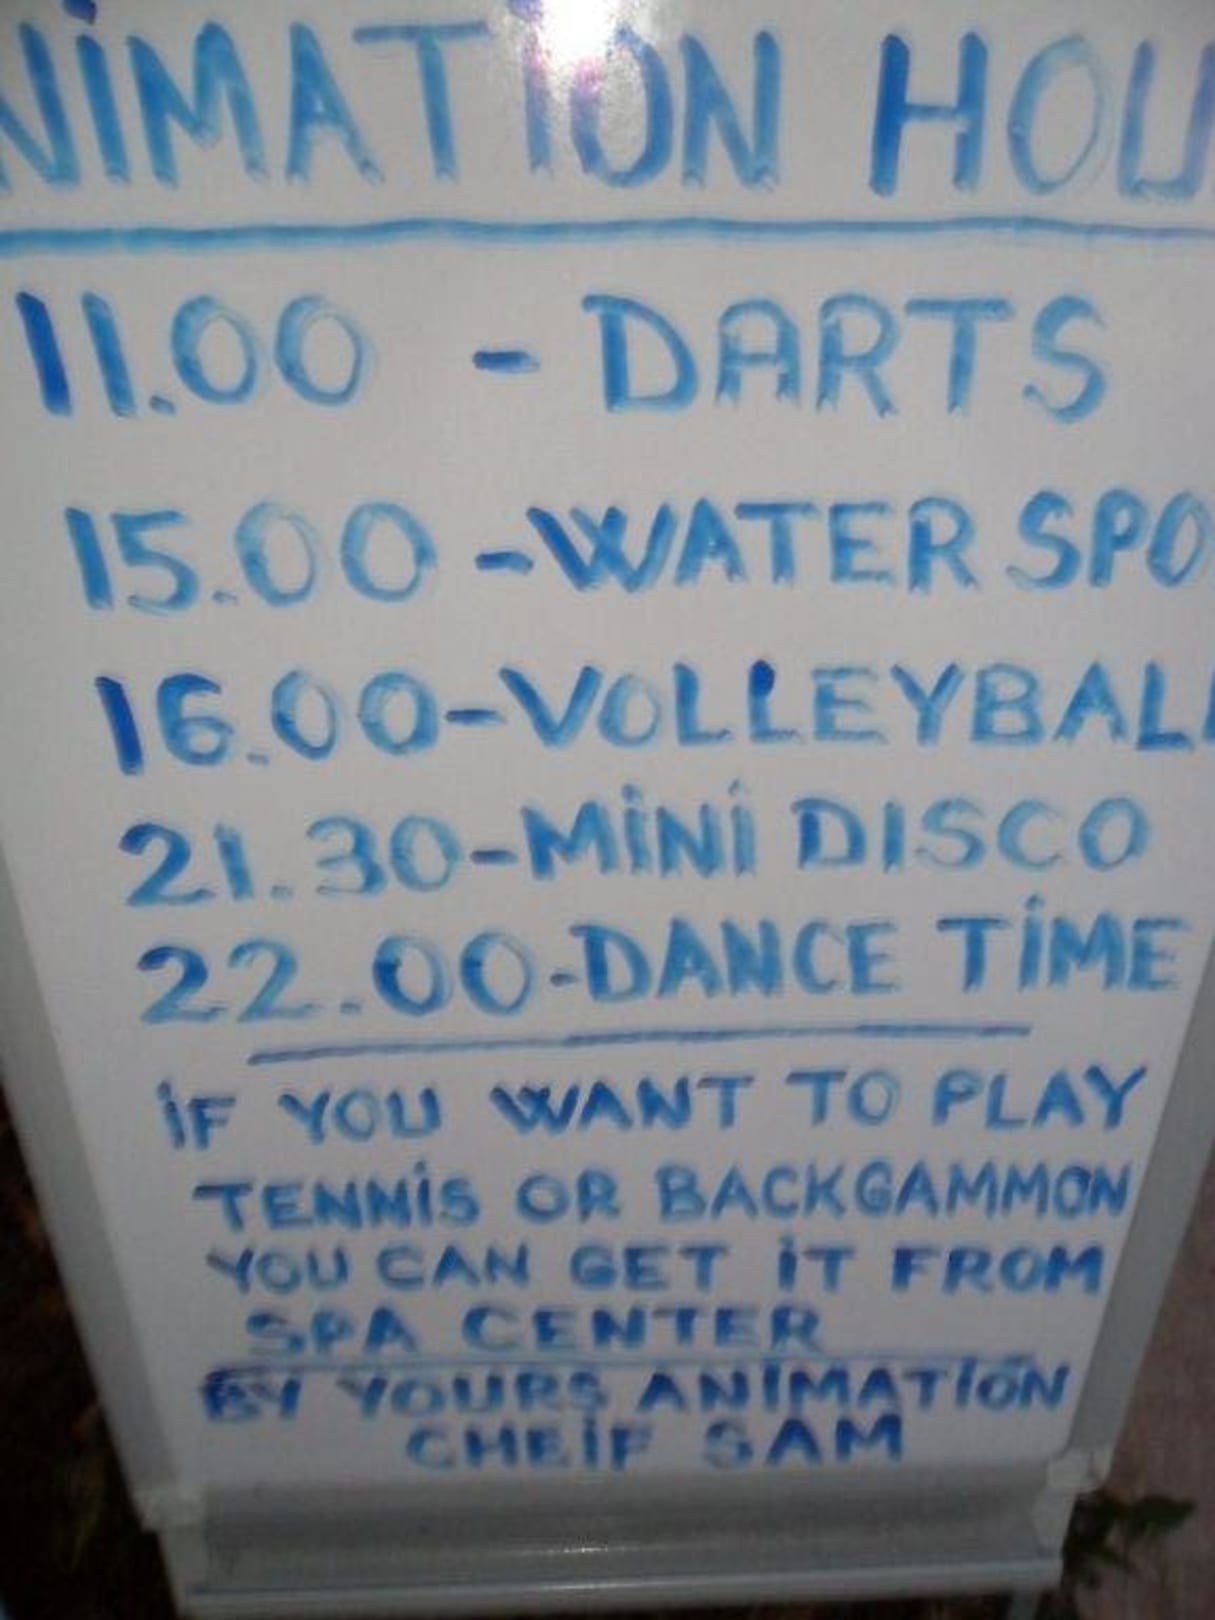 NİMATİON HOU
11.00 - DARTS
15.00 - WATER SPO
16.00 - VOLLEYBALL
21.30 - MİNİ DISCO
22.00 - DANCE TİME
İF YOU WANT TO PLAY
TENNİS OR BACKGAMMON
YOU CAN GET İT FROM
SPA CENTER
BY YOURS ANİMATİON
CHEİF SAM